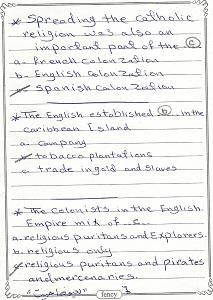 * Spreading the Catholic
religion was also an
important part of the. (c)
a. French colonzation
b. English colonzation
c. Spanish colonzation
* The English established (b) in the
caribbean Island
a. Company
b. tobacco plantations
c trade in gold and slaves
* The Colonists in the English
Empire mix of c.
a. religious puritans and Explorers.
b. religious only
c. religious puritans and pirates
and mercenaries.
fency